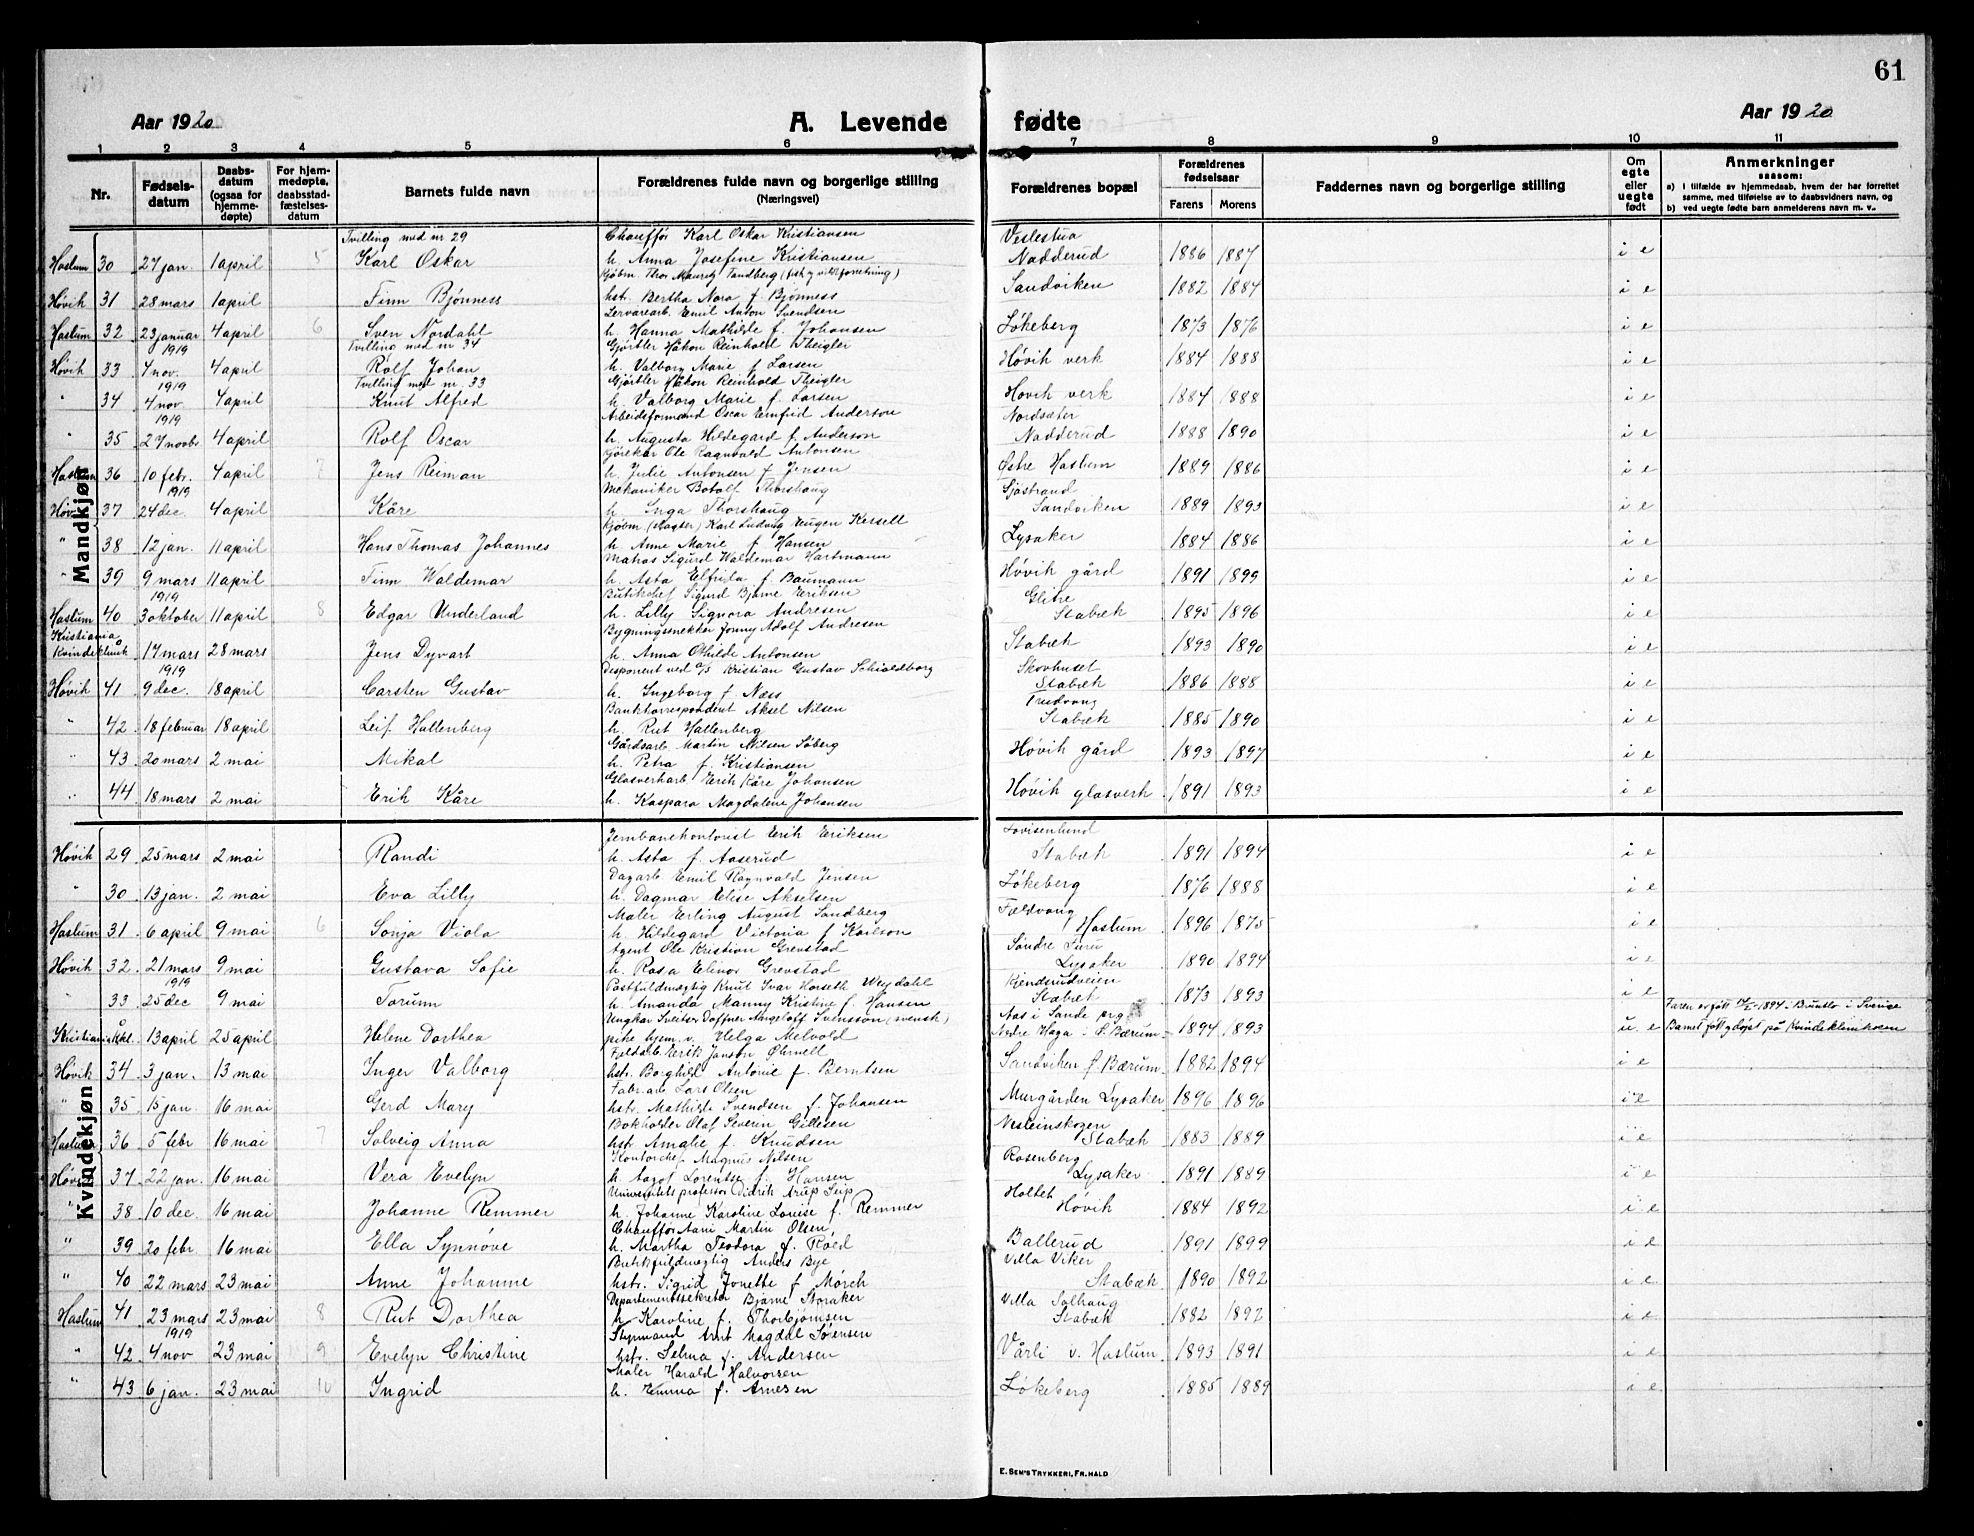 61
Aar 1920
A. Levende fødte
Aar 1920
1 2 3 4 5 6 7 8 9 10 11
Nr.
Fødsels-datum
Daabs-datum (ogsaa for hjemme-døpte)
For hjem-medøpte, daabsstad-fæstelses-datum
Barnets fulde navn
Forældrenes fulde navn og borgerlige stilling (Næringsvei)
Forældrenes bopæl
Forældrenes fødselsaar
Farens Morens
Faddernes navn og borgerlige stilling
Om egte eller uegte født
Anmerkninger
saasom:
a) i tilfælde av hjemmedaab, hvem der har forrettet samme, med tilføielse av to daabsvidners navn, og
b) ved uegte fødte barn anmelderens navn m. v.
Mandkjøn
Tvilling med nr 29 Chauffør Karl Oskar Kristiansen Veslestua
Haslum 30 27 jan. 1 april 5 Karl Oskar h. Anna Josefine Kristiansen Nadderud 1886 1887 i e
Kjøbm. Thor Mauritz Tandberg
Høvik 31 28 mars 1 april Finn Bjønness hstr. Bertha Nora f. Bjønness Sandviken 1882 1884 i e
Emil Anton Svendsen
Haslum 32 23 januar 4 april 6 Sven Nordahl h. Hanna Mathilde f. Johansen Løkeberg 1873 1876 i e
1919 Tvilling med nr 34 Gjørtler Håkon Reinhold Theigler
Høvik 33 4 nov. 4 april Rolf Johan h. Valborg Marie f. Larsen Høvik verk 1884 1888 i e
1919 Tvilling med nr. 33 Gjørtler Håkon Reinhold Theigler
" 34 4 nov. 4 april Knut Alfred h. Valborg Marie f. Larsen Høvik verk 1884 1888 i e
1919 Arbeidsformand Oscar Emfrid Anderson Nordsæter
" 35 27 novbr 4 april Rolf Oscar h. Augusta Hildegard f. Anderson Nadderud 1888 1890 i e
Kjørekar Ole Ragnvald Antonsen
Haslum 36 10 febr. 4 april 7 Jens Reiman h. Julie Antonsen f. Jensen Østre Haslum 1889 1886 i e
1919 Mekaniker Botolf Thorshaug Sjøstrand
Høvik 37 24 dec. 4 april Kåre h. Inga Thorshaug Sandviken 1889 1893 i e
Kjøbm Karl Ludvig Eugen
" 38 12 jan. 11 april Hans Thomas Johannes h. Anne Marie f. Hansen Lysaker 1884 1886 i e
Matros Sigurd Waldemar Hartmann
" 39 9 mars 11 april Finn Waldemar h. Asta Elfrida f. Baumann Høvik gård 1891 1899 i e
1919 Butikchef Sigurd Bjarne Eriksen Glitre
Haslum 40 3 oktober 11 april 8 Edgar Underland h. Lilly Signora Andresen Stabæk 1895 1896 i e
Kristiania Jonny Adolf Andresen
Kvindeklinik 17 mars 28 mars Jens Dyvart h. Anna Othilde Antonsen Stabæk 1893 1890 i e
1919 Disponent ved a/s Kristian Gustav Schioldborg Skovhuset
Høvik 41 9 dec. 18 april Carsten Gustav h. Ingeborg f. Næss Stabæk 1886 1888 i e
Bankkorrespondent Aksel Nilsen Trudvang
" 42 18 februar 18 april Leif Hallenberg h. Rut Hallenberg Stabæk 1885 1890 i e
Gårdsarb. Martin Nilsen Søberg
" 43 20 mars 2 mai Mikal h. Petra f. Kristiansen Høvik gård 1893 1897 i e
Glasverkarb Erik Kåre Johansen
" 44 18 mars 2 mai Erik Kåre h. Kaspara Magdalene Johansen Høvik glasverk 1891 1893 i e
Kvindekjøn
Jernbanekontorist Erik Eriksen Lovisenlund
Høvik 29 25 mars 2 mai Randi h. Asta f. Aaserud Stabæk 1891 1894 i e
Dagarb Emil Ragnvald Jensen
" 30 13 jan. 2 mai Eva Lilly h. Dagmar Elise Akselsen Løkeberg 1876 1888 i e
Maler Erling August Sandberg Fældvang
Haslum 31 6 april 9 mai 6 Sonja Viola h. Hildegard Victoria f. Karlson Haslum 1896 1875 i e
Agent Ole Kristian Grevstad Søndre Furu
Høvik 32 21 mars 9 mai Gustava Sofie h. Rosa Elinor Grevstad Lysaker 1890 1894 i e
1919 Postfuldmægtig Knut Ivar Horseth Weydahl Kjendsrudveien
" 33 25 dec 9 mai Torunn h. Amanda Manny Kristine f. Hansen Stabæk 1873 1893 i e
Ungkar Sveitser Angeloff Svensson (svensk) Nas i Sande prg Faren er født 1894 i Sverige
Kristiania 13 april 25 april Helene Dorthea pike hjem. v. Helga Melvold Nedre Haga i Ø. Bærum 1894 1893 u. e Barnet født og døpt på Kvindeklinikken
Erik Janson
Høvik 34 3 jan. 13 mai Inger Valborg hstr. Borghild Antonie f. Berntsen Sandviken Ø. Bærum 1882 1894 i e
Fabr. arb Lars Olsen
" 35 15 jan. 16 mai Gerd Mary hstr. Mathilde Svendsen f. Johansen Murgården Lysaker 1896 1896 i e
Bokholder Olaf Severin Gillesen Vesleinskogen
Haslum 36 5 febr 16 mai 7 Solveig Anna hstr. Amalie f. Knudsen Stabæk 1883 1889 i e
Kontorchef Magnus Nilsen Rosenberg
Høvik 37 22 jan. 16 mai Vera Evelyn h. Aagot Lorentse f. Hansen Lysaker 1891 1889 i e
Universitets professor Didrik Arup Seip Holtet
" 38 10 dec. 16 mai Johanne Remmer h. Johanne Karoline Louise f. Remmer Høvik 1884 1892 i e
Chauffør Martin Olsen
" 39 20 febr 16 mai Ella Synnøve h. Martha Teodora f. Røed Ballerud 1891 1899 i e
Butikfuldmægtig Anders Bye Villa Viker
" 40 22 mars 23 mai Anne Johanne hstr. Sigrid Jonette f. Mørch Stabæk 1890 1892 i e
Departementssekretær Bjarne Storaker Villa Solhaug
Haslum 41 23 mars 23 mai 8 Rut Dorthea h. Karoline f. Thorbjørnsen Stabæk 1882 1892 i e
1919 Styrmand Arnt Magdal Sørensen
" 42 4 nov 23 mai 9 Evelyn Christine hstr. Selma f. Andersen Vårli v. Haslum 1893 1891 i e
Maler Harald Halvorsen
" 43 6 jan. 23 mai 10 Ingrid h. Emma f. Arnesen Løkeberg 1885 1889 i e
E. SEM'S TRYKKERI, FR.HALD